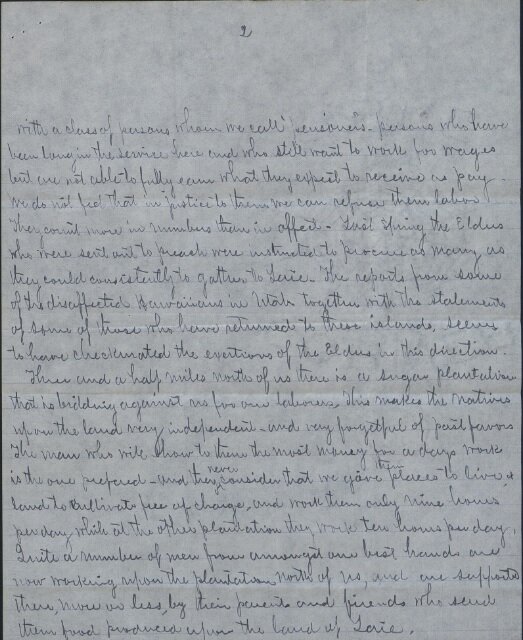 2
with a class of persons whom we call "pensioners - persons who have
been long in the service here and who still want to work for wages
but are not able to fully earn what they expect to receive as pay -
we do not feel that in justice to them we can refuse them labor
They count more in numbers than in effect - Last Spring the Elders
who were sent out to preach were instructed to procure as many as
they could consistently to gather to Laie. The reports from some
of the disaffected Hawaiians in Utah together with the statements
of some of those who have returned to these islands, seems
to have checkmated the exertions of the Elders in this direction.
Three and a half miles north of us there is a sugar plantation
that is bidding against us for our laborers. This makes the natives
upon the land very independent - and very forgetful of past favors
The man who will show to them the most money for a days work
is the one prefered - and they never consider that we gave them places to live &
land to cultivate free of charge, and work them only nine hours
per day while at the other plantation they work ten hours per day.
Quite a number of men from amongst our best hands are
now working upon the plantation north of us, and are supported
there, more or less, by their parents and friends who send
them food produced upon the land of Laie.